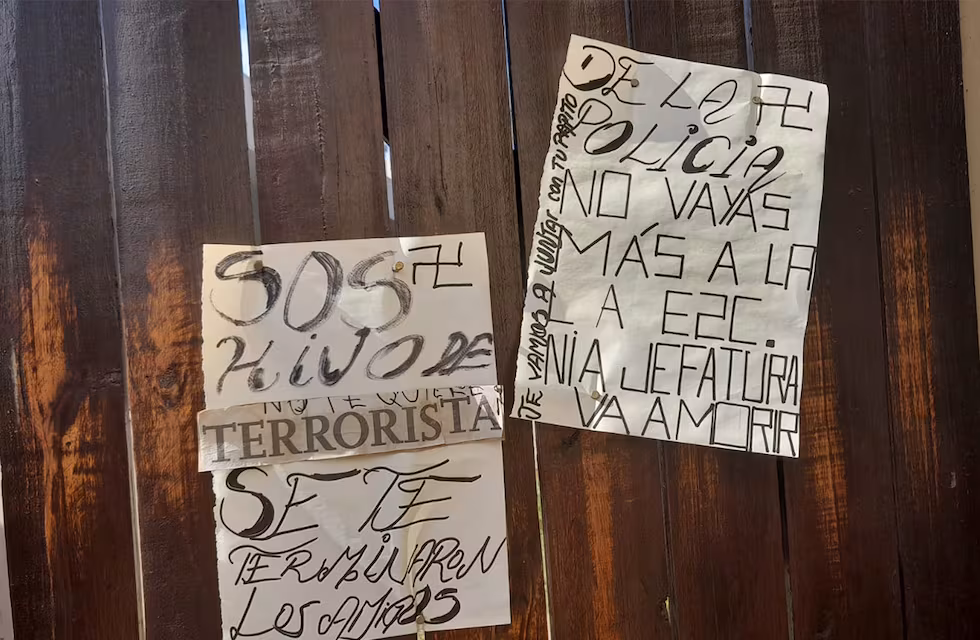 SOS
HiJO DE
NO TE QUIERE
TERRORISTA
SE TE
TERMiNARON
LOS AMiGOS
DE LA
POLiCíA
NO VAYAS
MÁS A LA
NI A JEFATURA
VA A MORIR
TE VAMOS A JUNTAR con TU PAPITO